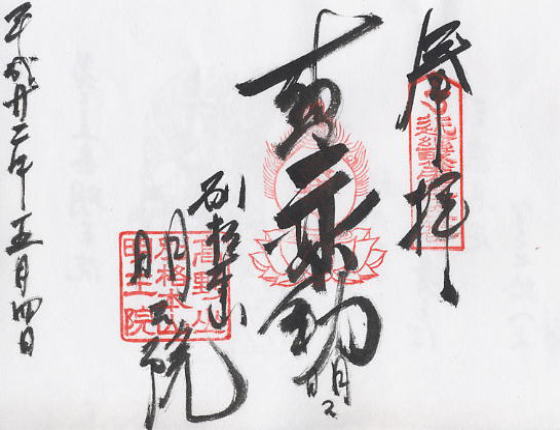 奉拝
赤不動明王
別格本山
明王院
高野山
別格本山
明王院
平成廿二年五月四日